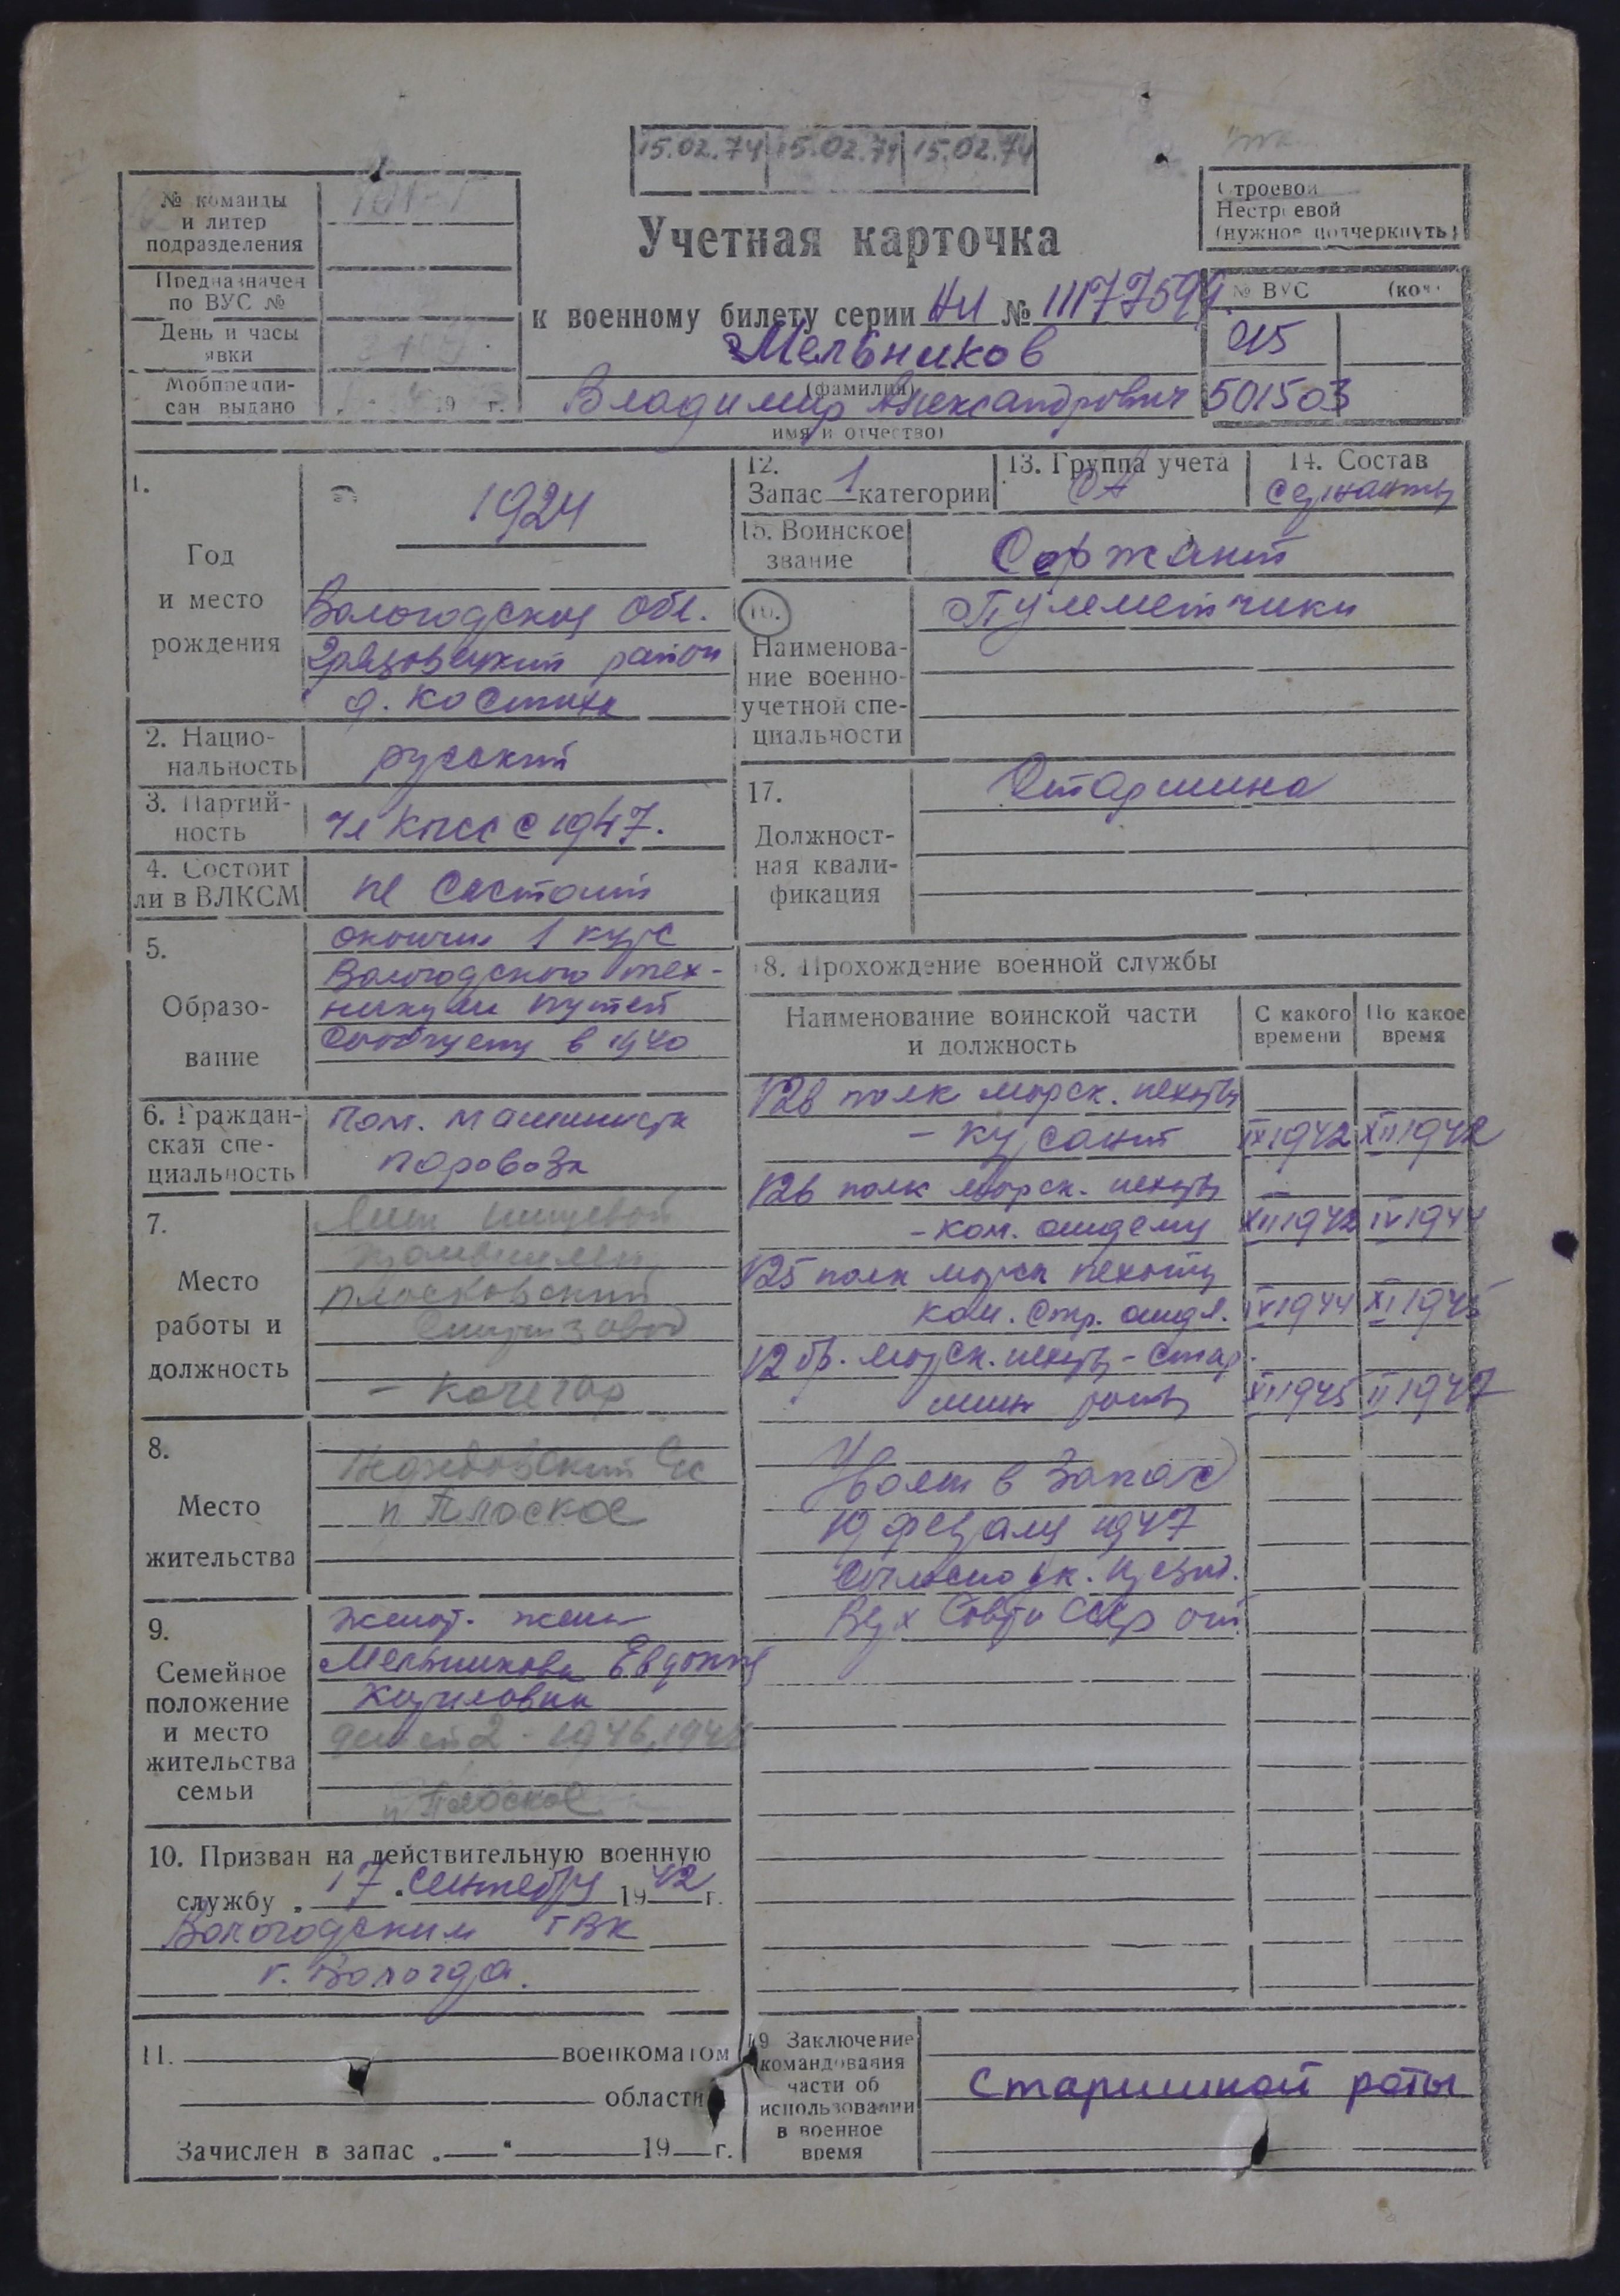 15.02.74 15.02.74 15.02.74
№ команды
и литер
подразделения
Предназначен
по ВУС №
День и часы
явки
Мобпредпи-
сан выдано 19 г.
Строевой
Нестроевой
(нужное подчеркнуть)
Учетная карточка
к военному билету серии НИ №
Мельников
(фамилия)
Владимир Александрович
имя и отчество)
№ ВУС
015
501503
1.
Год
и место
рождения
1924
Вологодская обл.
Грязовецкий район
д. Костиха
2. Нацио-
нальность
русский
3. Партий-
ность
чл КПСС с 1947.
4. Состоит
ли в ВЛКСМ
не состоит
5.
Образо-
вание
окончил 1 курс
Вологодского тех-
никум путей
сообщения в 1940
6. Граждан-
ская спе-
циальность
Пом. машиниста
паровоза
7.
Место
работы и
должность
Плосковский
Спиртзавод
- кочегар
8.
Место
жительства
п Плоское
9.
Семейное
положение
и место
жительства
семьи
женат. жена
Мельникова Евдокия
Кириловна
детей 2 - 1946,
п Плоское
10. Призван на действительную военную
службу „ 17 " сентября 1942 г.
Вологодским ГВК
г. Вологда.
11. военкоматом
области
Зачислен в запас „ " 19 г.
12.
Запас 1 категории
13. Группа учета
СА
14. Состав
сержанты
15. Воинское
звание
Сержант
16.
Наименова-
ние военно-
учетной спе-
циальности
Пулеметчики
17.
Должност-
ная квали-
фикация
Старшина
18. Прохождение военной службы
Наименование воинской части
и должность
С какого
времени
По какое
время
126 полк морск. пехоты
- курсант IX 1942 XII 1942
126 полк морск. пехоты
- ком. отделения XII 1942 IV 1944
125 полк морск пехоты
ком. стр. отдел. IV 1944 XI 1945
12 бр. морск. пехоты - стар-
шина роты XI 1945 II 1947
Уволен в запас
19 февраля 1947
Согласно ук. Презид.
Верх Совета СССР от
19 Заключение
командования
части об
использовании
в военное
время
Старшиной роты